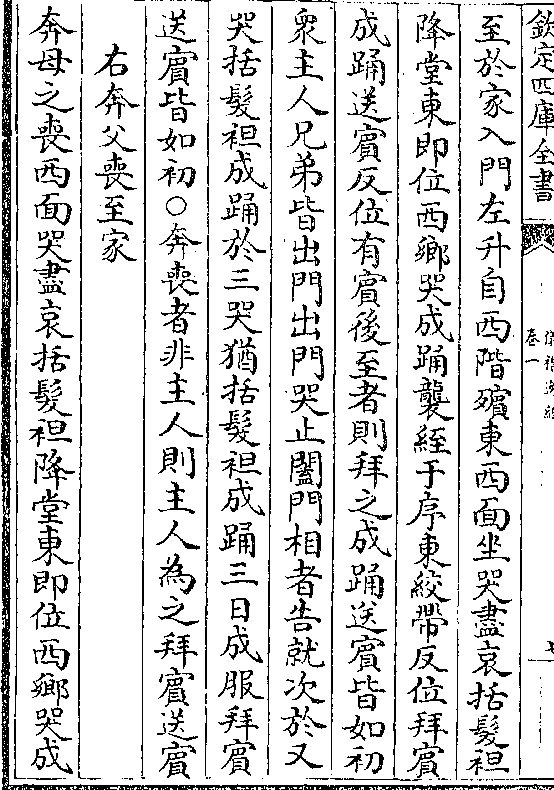 欽定四庫全書
卷一
至於家入門左升自西階殯東西面坐哭盡哀括髮袒
降堂東即位西鄉哭成踊襲絰于序東絞帶反位拜賓
成踊送賓反位有賓後至者則拜之成踊送賓皆如初
衆主人兄弟皆出門出門哭止闔門相者告就次於又
哭括髮袒成踊於三哭猶括髮袒成踊三日成服拜賓
送賓皆如初○奔喪者非主人則主人為之拜賓送賓
右奔父喪至家
奔母之喪西面哭盡哀括髮袒降堂東即位西鄉哭成